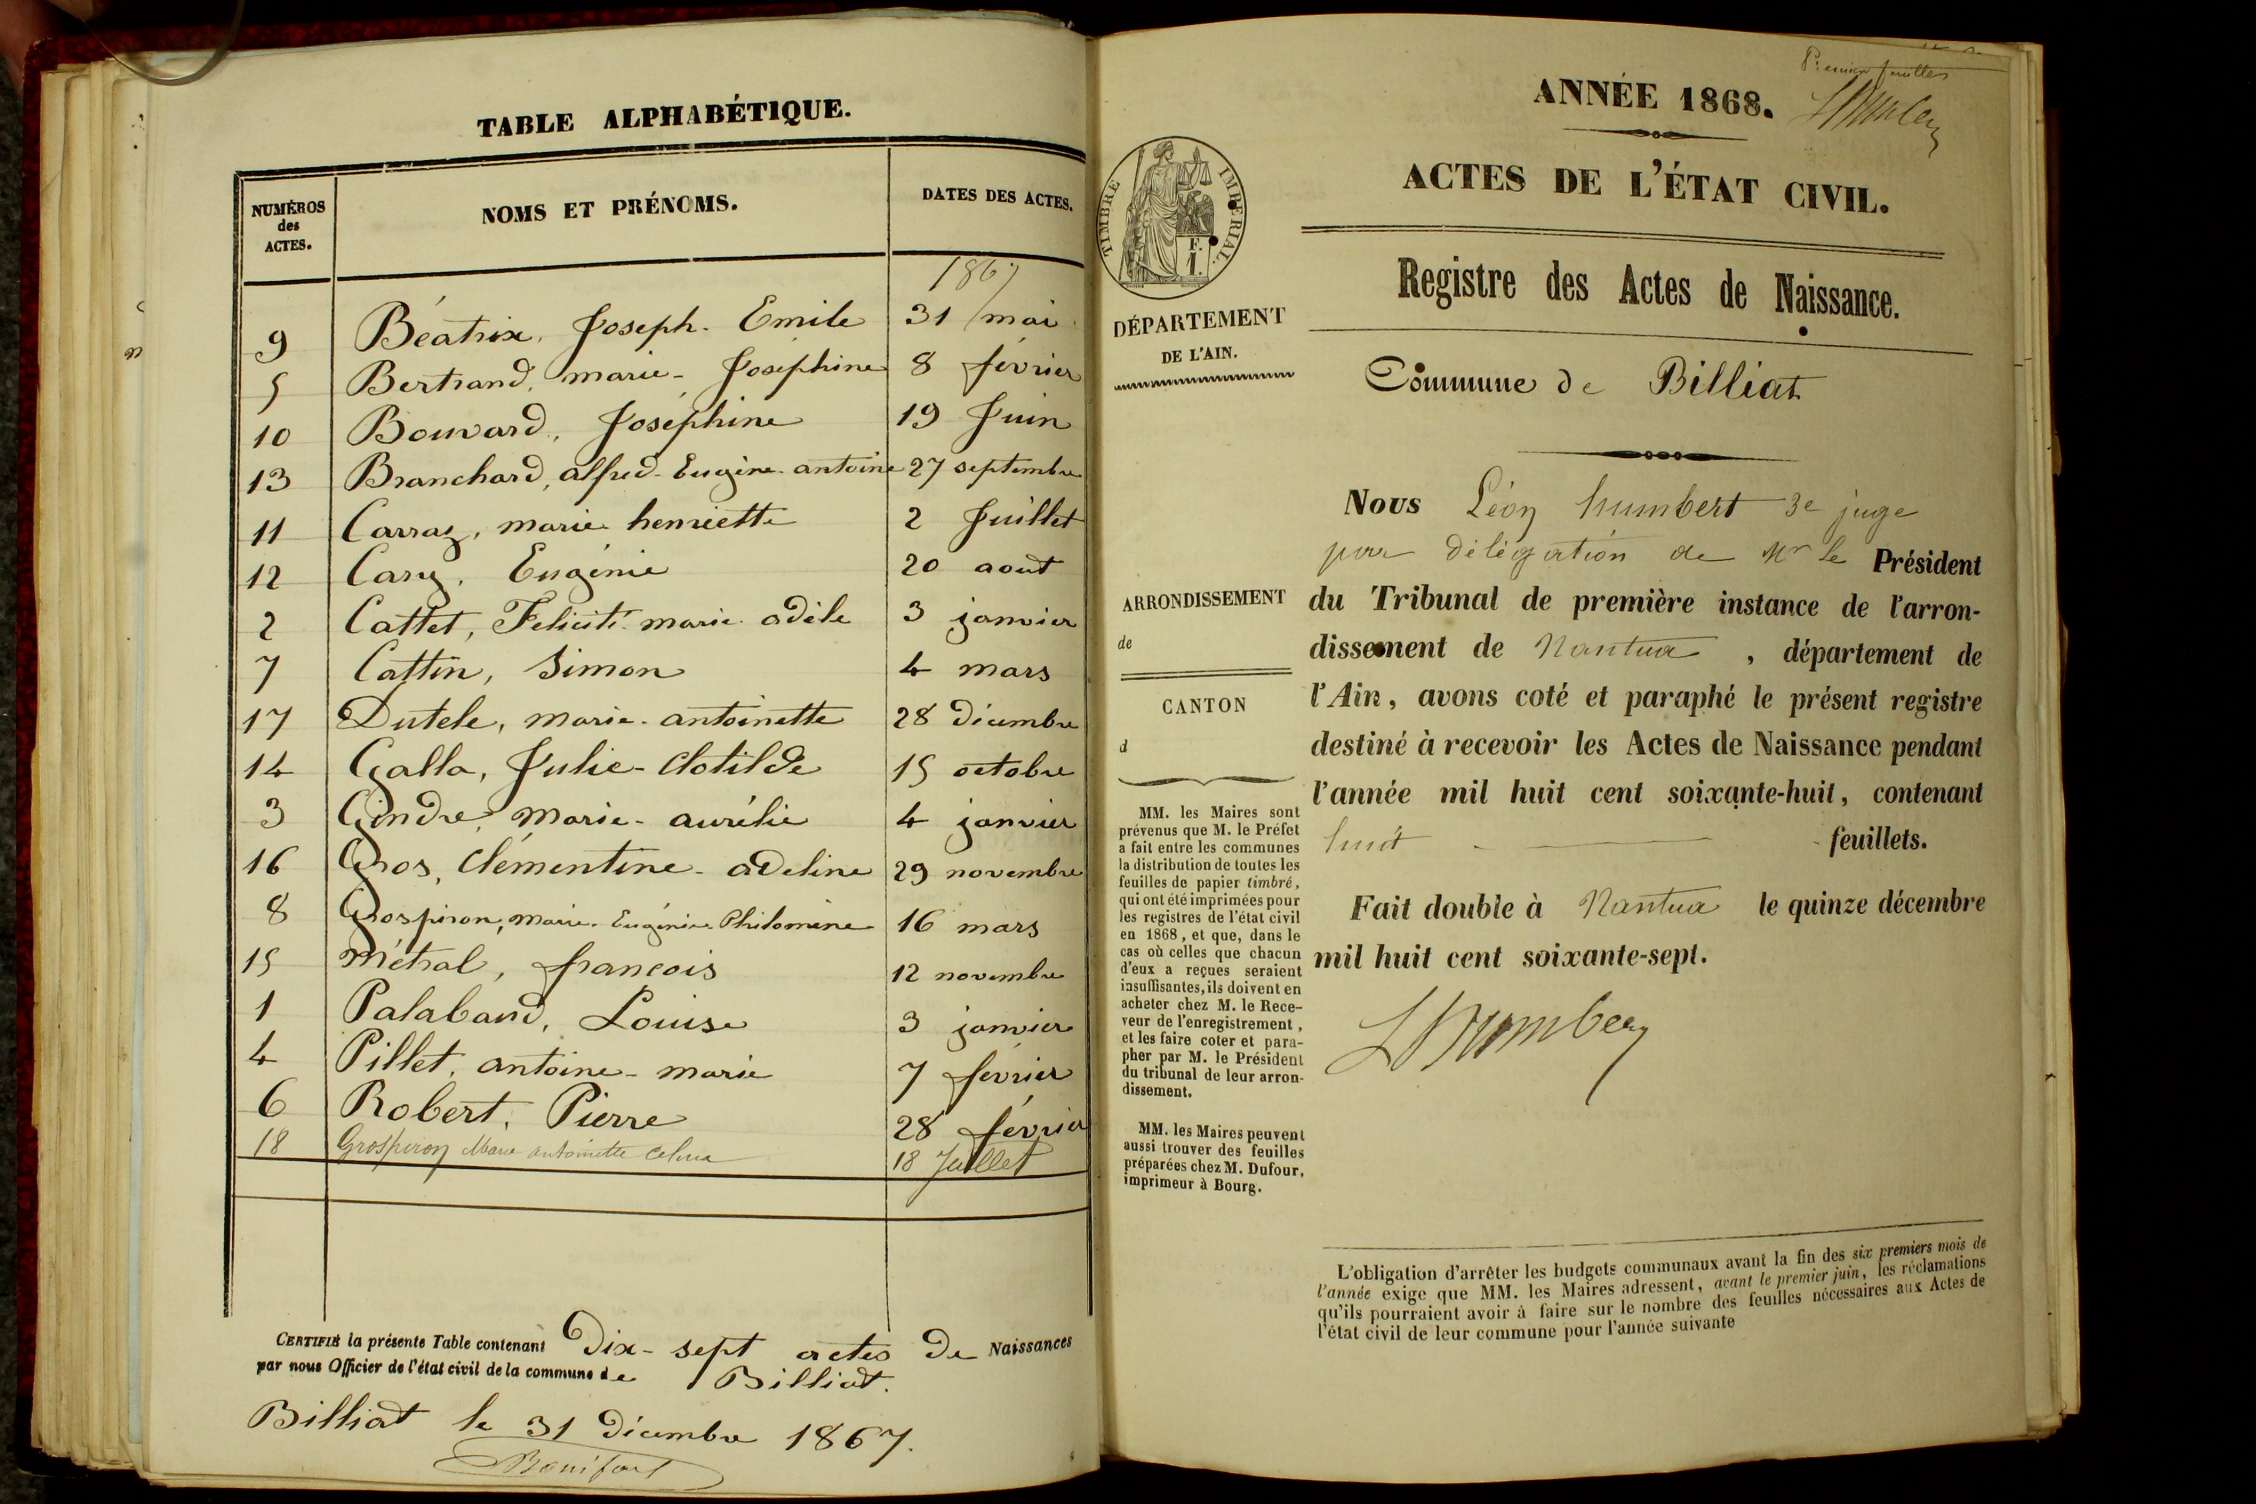 TABLE ALPHABÉTIQUE.
NUMÉROS des ACTES. NOMS ET PRÉNOMS. DATES DES ACTES.
1867
9 Béatrix, Joseph-Emile 31 mai
5 Bertrand, marie-Joséphine 8 février
10 Bouvard, Joséphine 19 Juin
13 Branchard, alfred-Eugène-antoine 27 septembre
11 Carraz, marie henriette 2 Juillet
12 Carry, Eugénie 20 aout
2 Cattet, Felicité marie adèle 3 janvier
7 Cattin, Simon 4 mars
17 Dutele, marie-antoinette 28 décembre
14 Galla, Julie-Clotilde 15 octobre
3 Gindre, Marie-aurélie 4 janvier
16 Gros, Clémentine-adeline 29 novembre
8 Grospiron, marie-Eugénie Philomène 16 mars
15 Métral, françois 12 novembre
1 Palabaud, Louise 3 janvier
4 Pillet, antoine-marie 7 février
6 Robert, Pierre 28 février
18 Grospiron Marie antoinette 18 Juillet
CERTIFIÉ la présente Table contenant Dix-sept actes de Naissances
par nous Officier de l'état civil de la commune de Billiat.
Billiat le 31 Décembre 1867.
Premier feuillet
ANNÉE 1868.
LHumbert
ACTES DE L'ÉTAT CIVIL.
Registre des Actes de Naissance.
Commune de Billiat
TIMBRE IMPÉRIAL.
F.
1.
DÉPARTEMENT
DE L'AIN.
ARRONDISSEMENT
de
CANTON
d
MM. les Maires sont
prévenus que M. le Préfet
a fait entre les communes
la distribution de toutes les
feuilles de papier timbré,
qui ont été imprimées pour
les registres de l'état civil
en 1868, et que, dans le
cas où celles que chacun
d'eux a reçues seraient
insuffisantes, ils doivent en
acheter chez M. le Rece-
veur de l'enregistrement,
et les faire coter et para-
pher par M. le Président
du tribunal de leur arron-
dissement.
MM. les Maires peuvent
aussi trouver des feuilles
préparées chez M. Dufour,
imprimeur à Bourg.
Nous Léon humbert 3e juge
par délégation de Mr le Président
du Tribunal de première instance de l'arron-
dissement de Nantua, département de
l'Ain, avons coté et paraphé le présent registre
destiné à recevoir les Actes de Naissance pendant
l'année mil huit cent soixante-huit, contenant
huit feuillets.
Fait double à Nantua le quinze décembre
mil huit cent soixante-sept.
LHumbert
L'obligation d'arrêter les budgets communaux avant la fin des six premiers mois de
l'année exige que MM. les Maires adressent, avant le premier juin, les réclamations
qu'ils pourraient avoir à faire sur le nombre des feuilles nécessaires aux Actes de
l'état civil de leur commune pour l'année suivante